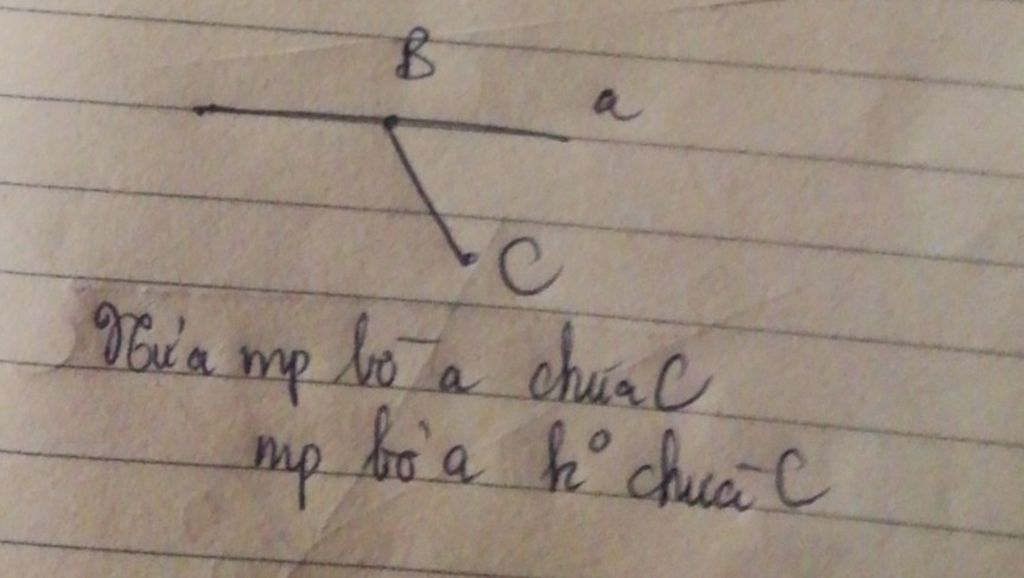 B
a
C
Nửa mp bờ a chứa C
mp bờ a k° chứa C